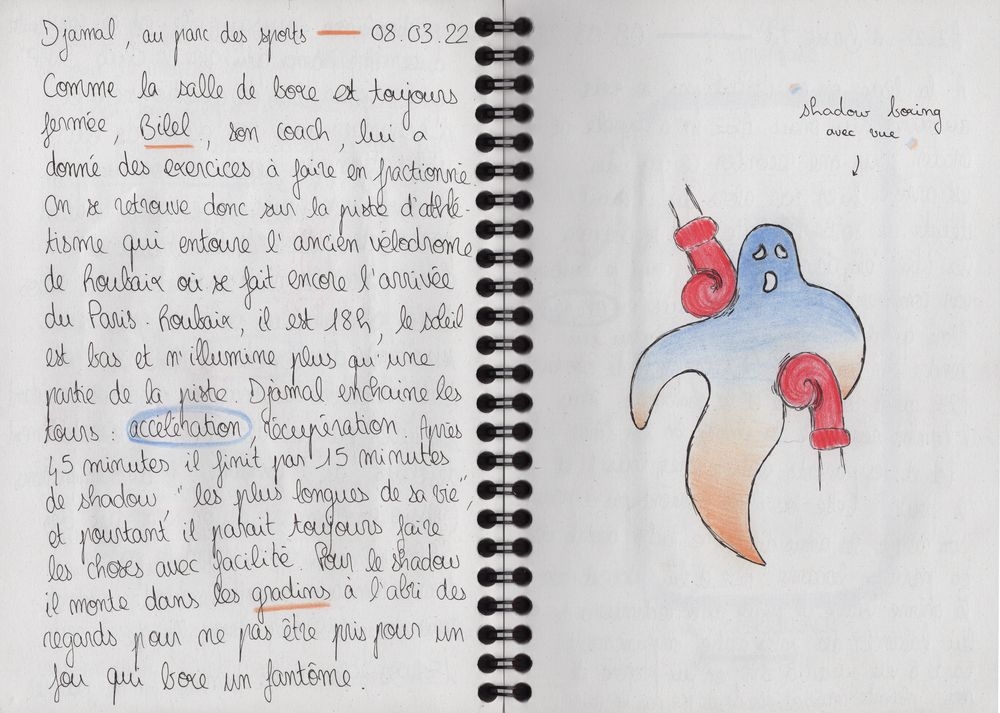 Djamal, au parc des sports — 08.03.22
Comme la salle de boxe est toujours
fermée, Bilel, son coach, lui a
donné des exercices à faire en fractionné.
On se retrouve donc sur la piste d'athlé-
tisme qui entoure l'ancien vélodrome
de Roubaix où se fait encore l'arrivée
du Paris-Roubaix, il est 18h, le soleil
est bas et n'illumine plus qu'une
partie de la piste. Djamal enchaine les
tours : accélération, récupération. Après
45 minutes il finit par 15 minutes
de shadow, "les plus longues de sa vie",
et pourtant il parait toujours faire
les choses avec facilité. Pour le shadow
il monte dans les gradins à l'abri des
regards pour ne pas être pris pour un
fou qui boxe un fantôme.
shadow boxing
avec vue